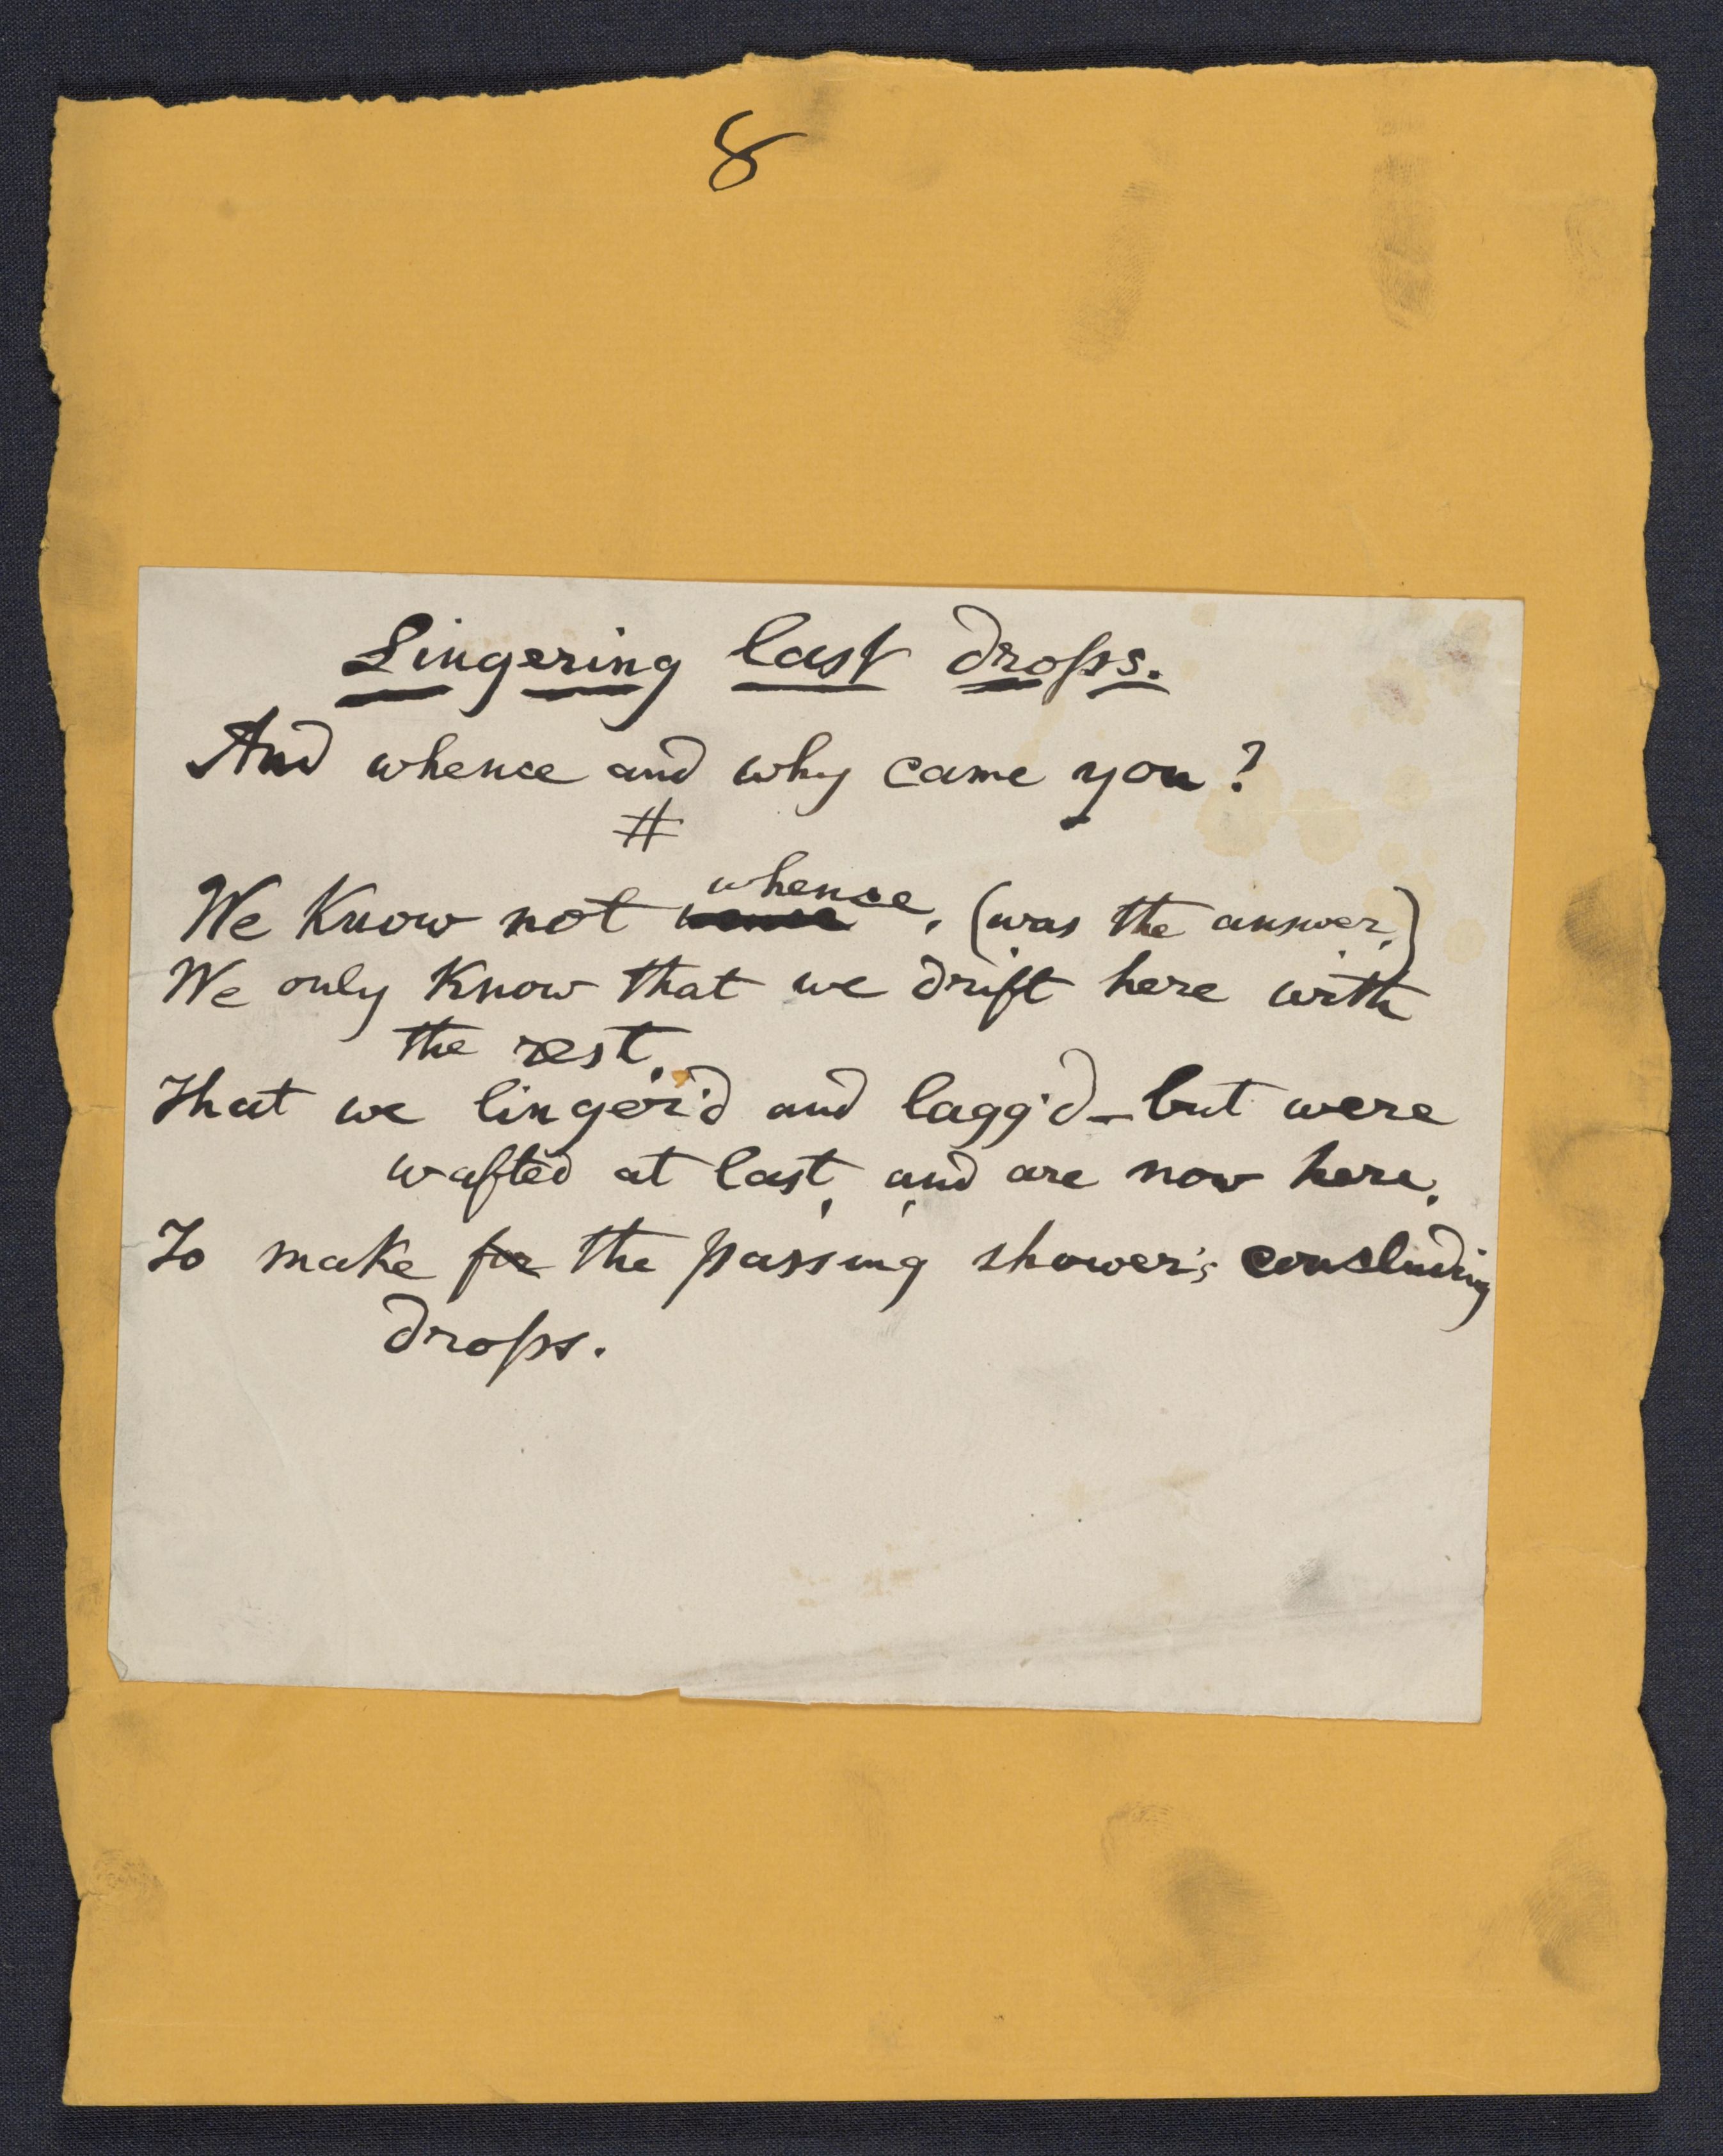 8
Lingering last drops.
And whence and why came you?
#
whence,
We know not (was the answer,)
We only know that we drift here with
the rest,
That we linger'd and lagg'd — but were
wafted at last, and are now here,
To make for the passing shower's concluding
drops.